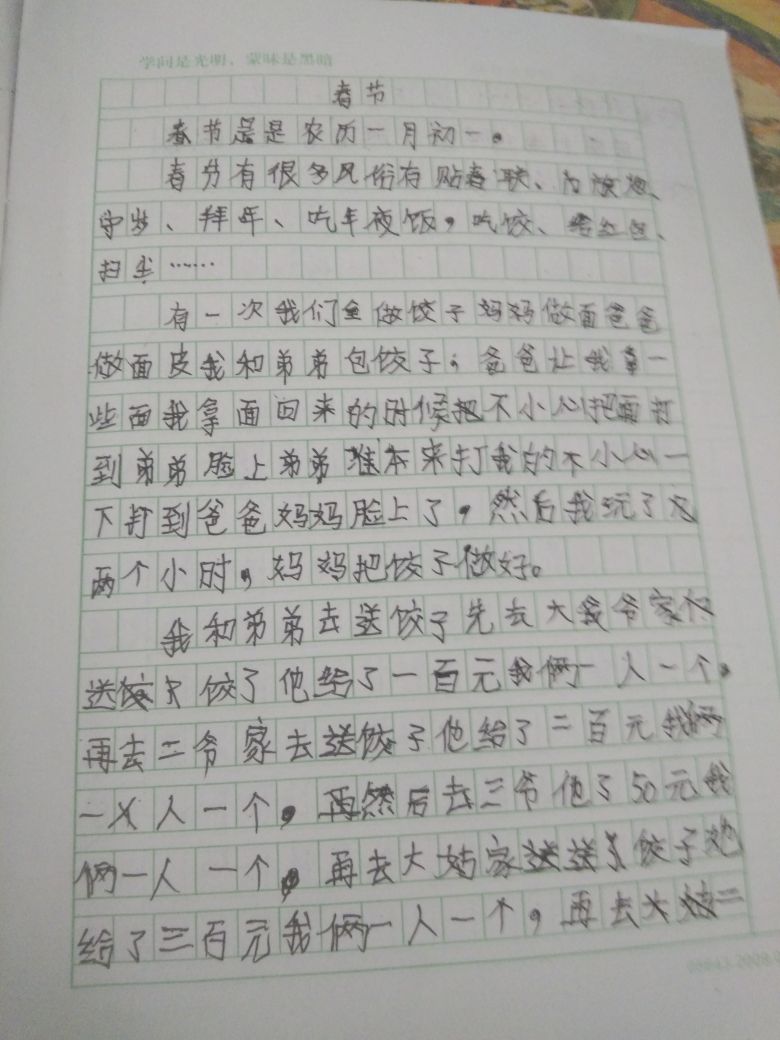 学问是光明，蒙昧是黑暗
春节
春节是是农历一月初一。
春节有很多风俗有贴春联、
守岁、拜年、吃年夜饭，吃饺、给红包、
扫尘……
有一次我们全做饺子妈妈做面爸爸
做面皮我和弟弟包饺子，爸爸让我拿一
些面我拿面回来的时候把不小心把面打
到弟弟脸上弟弟准本来打我的不小心一
下打到爸爸妈妈脸上了，然后我玩了
两个小时，妈妈把饺子做好。
我和弟弟去送饺子先去大爷家
送饺了他给了一百元我俩一人一个。
再去二爷家去送饺子他给了二百元我俩
一人一个，再然后去三爷他了50元我
俩一人一个，再去大姑家送送饺子她
给了三百元我俩一人一个，再去二